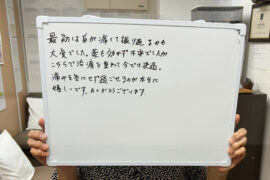 最初は首が痛くて振り返るのも
大変でした。薬も効かず不安でしたが
こちらで治療を重ねて今では快適。
痛みを気にせず過ごせるのが本当に
嬉しいです。ありがとうございます。